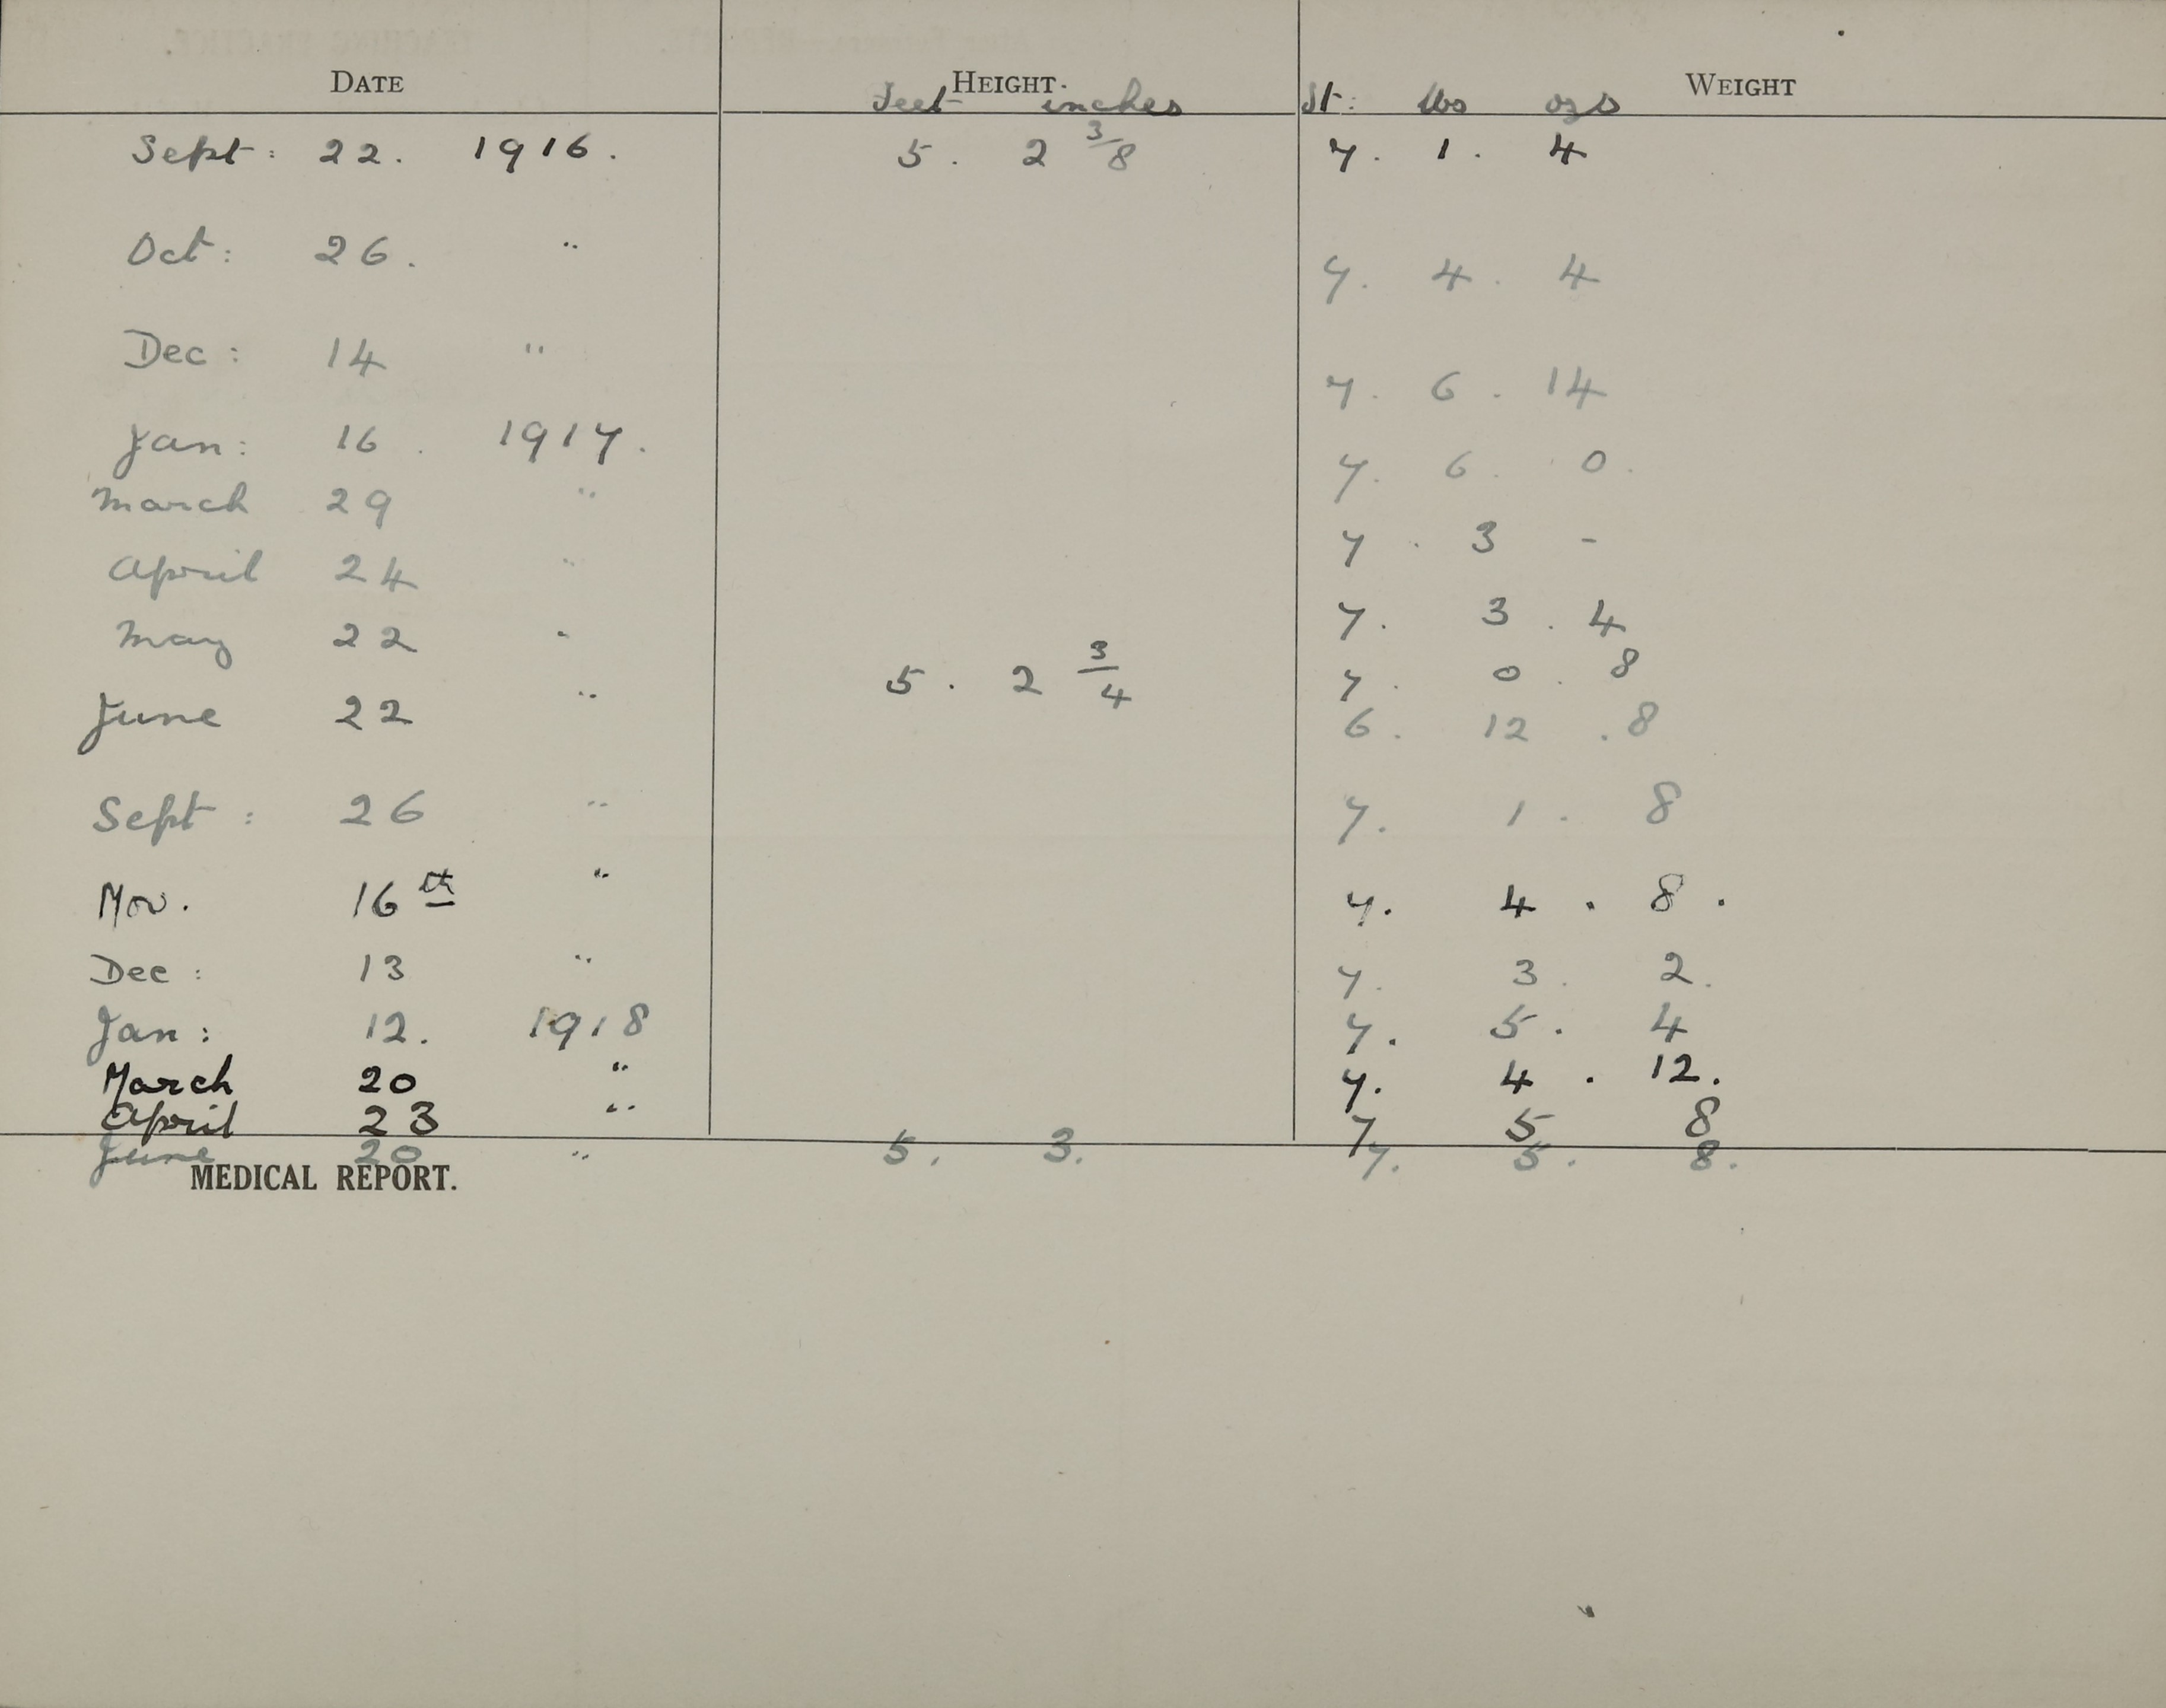 DATE HEIGHT. WEIGHT
Feet inches St: lbs ozs
Sept: 22. 1916. 5. 2 3/8 7. 1. 4
Oct: 26. " 7. 4. 4
Dec: 14 " 7. 6. 14
Jan: 16. 1917. 7. 6. 0.
March 29 " 7. 3 -
April 24 " 7. 3. 4
May 22 " 5. 2 3/4 7. 0. 8
June 22 " 6. 12. 8
Sept: 26 " 7. 1. 8
Nov. 16th " 7. 4. 8.
Dec: 13 " 7. 3. 2.
Jan: 12. 1918 7. 5. 4
March 20 " 7. 4. 12.
April 23 " 7 5 8
June 20 " 5. 3. 7. 5. 8.
MEDICAL REPORT.